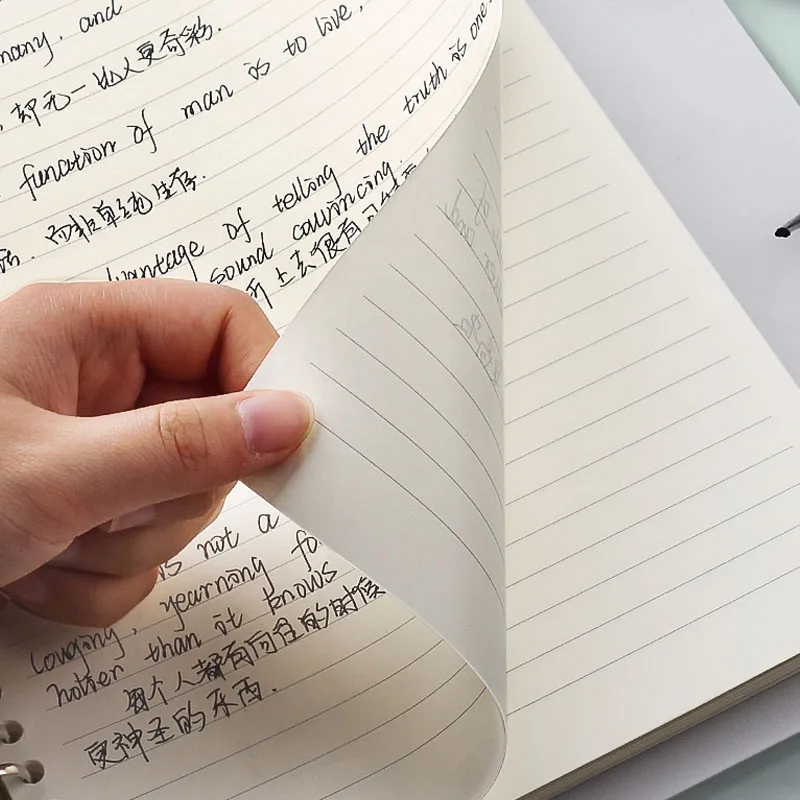 many, and
却无一比人更奇妙.
function of man is to love,
而非单纯生存.
advantage of telling the truth is one
sound convincing.
听上去很有可信
is not a
Longing, yearning fo
holier than it knows
每个人都有向往的时候
更神圣的东西.